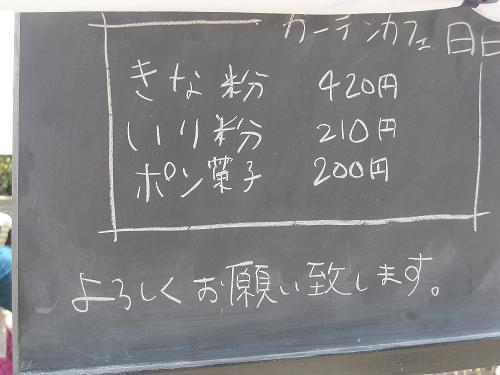 ガーデンカフェ日日
きな粉 420円
いり粉 210円
ポン菓子 200円
よろしくお願い致します。